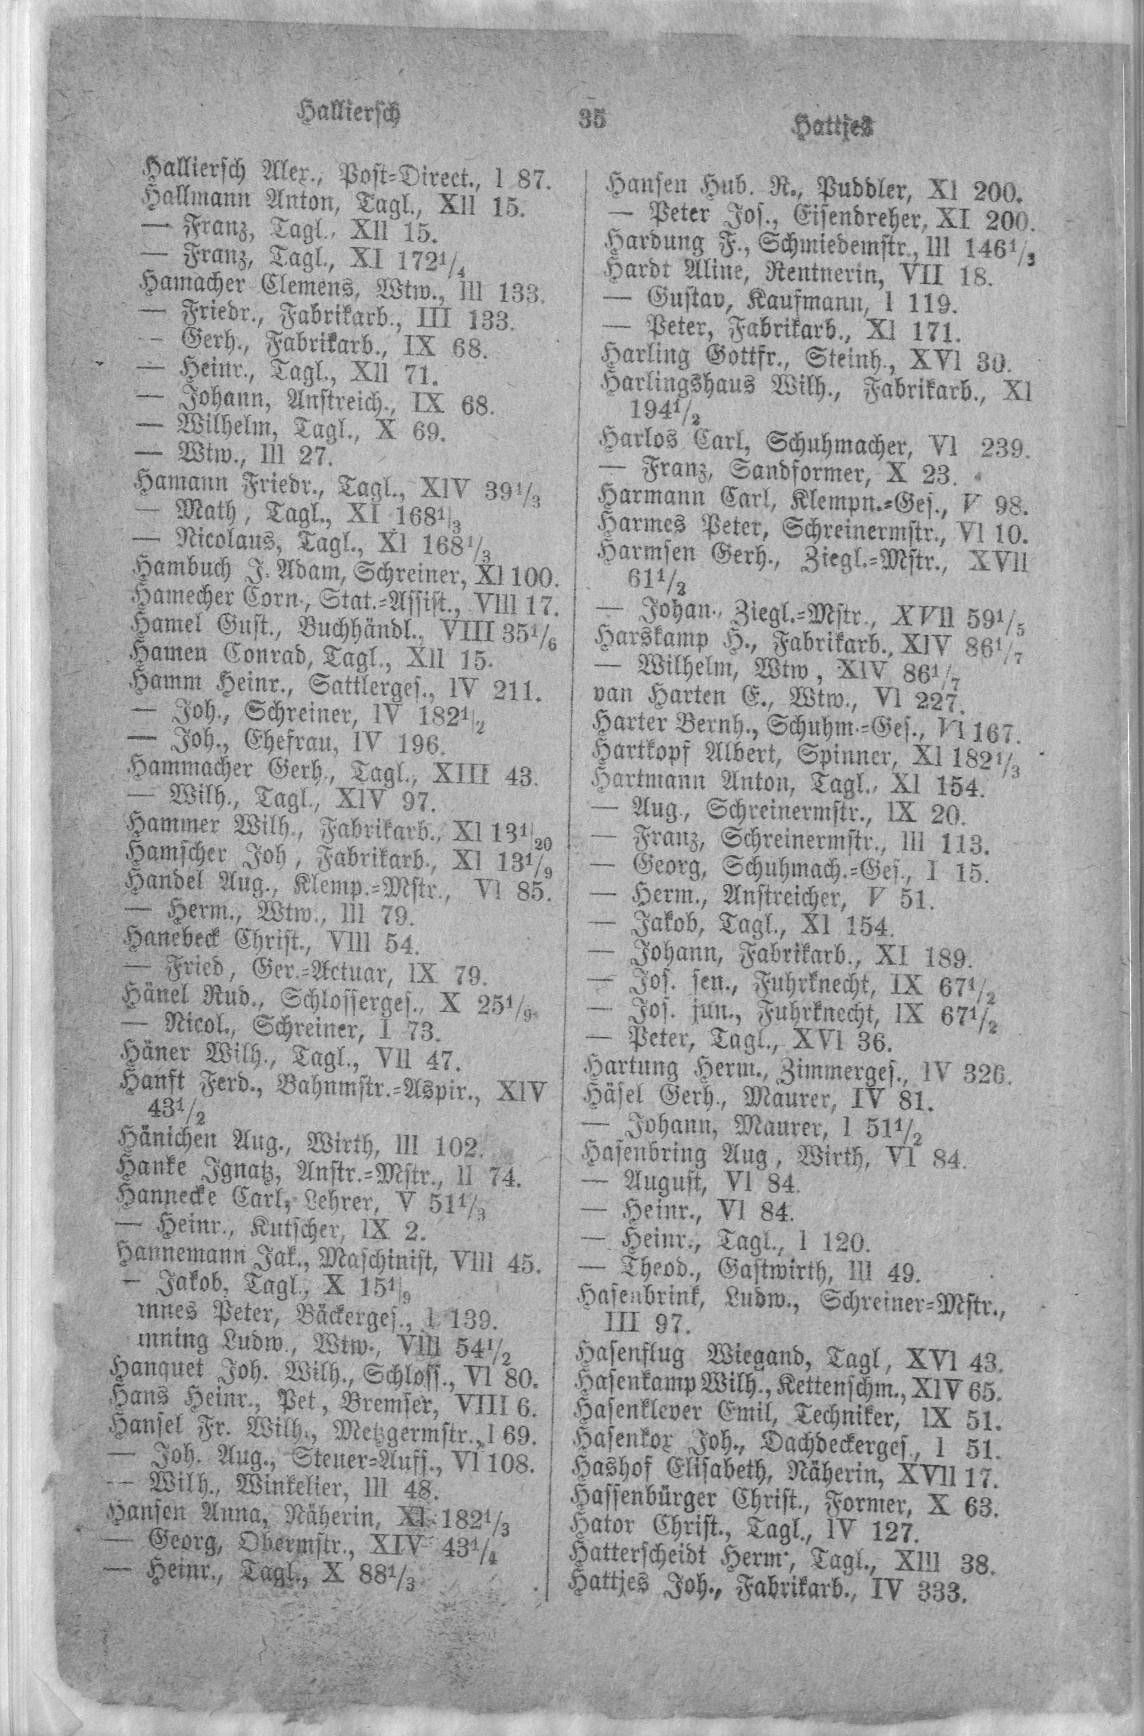 Halliersch
35
Hattjes
Halliersch Alex., Post=Direct., I 87.
Hallmann Anton, Tagl., XII 15.
— Franz, Tagl., XII 15.
— Franz, Tagl., XI 172 1/4
Hamacher Clemens, Wtw., III 133.
— Friedr., Fabrikarb., III 133.
— Gerh., Fabrikarb., IX 68.
— Heinr., Tagl., XII 71.
— Johann, Anstreich., IX 68.
— Wilhelm, Tagl., X 69.
— Wtw., III 27.
Hamann Friedr., Tagl., XIV 39 1/3
— Math, Tagl., XI 168 1/3
— Nicolaus, Tagl., XI 168 1/3
Hambuch J. Adam, Schreiner, XI 100.
Hamecher Corn., Stat.=Assist., VIII 17.
Hamel Gust., Buchhändl., VIII 35 1/6
Hamen Conrad, Tagl., XII 15.
Hamm Heinr., Sattlerges., IV 211.
— Joh., Schreiner, IV 182 1/2
— Joh., Ehefrau, IV 196.
Hammacher Gerh., Tagl., XIII 43.
— Wilh., Tagl., XIV 97.
Hammer Wilh., Fabrikarb., XI 13 1/20
Hamscher Joh, Fabrikarb., XI 13 1/9
Handel Aug., Klemp.=Mstr., VI 85.
— Herm., Wtw., III 79.
Hanebeck Christ., VIII 54.
— Fried, Ger.=Actuar, IX 79.
Hänel Rud., Schlosserges., X 25 1/9
— Nicol., Schreiner, I 73.
Häner Wilh., Tagl., VII 47.
Hanft Ferd., Bahnmstr.=Aspir., XIV
43 1/2
Hänichen Aug., Wirth, III 102.
Hanke Ignatz, Anstr.=Mstr., II 74.
Hannecke Carl, Lehrer, V 51 1/3
— Heinr., Kutscher, IX 2.
Hannemann Jak., Maschinist, VIII 45.
— Jakob, Tagl., X 15 1/9
nnes Peter, Bäckerges., I 139.
nning Ludw., Wtw., VIII 54 1/2
Hanquet Joh. Wilh., Schloss., VI 80.
Hans Heinr., Pet, Bremser, VIII 6.
Hansel Fr. Wilh., Metzgermstr., I 69.
— Joh. Aug., Steuer=Auff., VI 108.
— Wilh., Winkelier, III 48.
Hansen Anna, Näherin, XI 182 1/3
— Georg, Obermstr., XIV 43 1/4
— Heinr., Tagl., X 88 1/3
Hansen Hub. N., Puddler, XI 200.
— Peter Jos., Eisendreher, XI 200.
Hardung F., Schmiedemstr., III 146 1/3
Hardt Aline, Rentnerin, VII 18.
— Gustav, Kaufmann, I 119.
— Peter, Fabrikarb., XI 171.
Harling Gottfr., Steinh., XVI 30.
Harlingshaus Wilh., Fabrikarb., XI
194 1/2
Harlos Carl, Schuhmacher, VI 239.
— Franz, Sandformer, X 23.
Harmann Carl, Klempn.=Ges., V 98.
Harmes Peter, Schreinermstr., VI 10.
Harmsen Gerh., Ziegl.=Mstr., XVII
61 1/2
— Johan., Ziegl.=Mstr., XVII 59 1/5
Harskamp H., Fabrikarb., XIV 86 1/7
— Wilhelm, Wtw, XIV 86 1/7
van Harten E., Wtw., VI 227.
Harter Bernh., Schuhm.=Ges., VI 167.
Hartkopf Albert, Spinner, XI 182 1/3
Hartmann Anton, Tagl., XI 154.
— Aug., Schreinermstr., IX 20.
— Franz, Schreinermstr., III 113.
— Georg, Schuhmach.=Ges., I 15.
— Herm., Anstreicher, V 51.
— Jakob, Tagl., XI 154.
— Johann, Fabrikarb., XI 189.
— Jos. sen., Fuhrknecht, IX 67 1/2
— Jos. jun., Fuhrknecht, IX 67 1/2
— Peter, Tagl., XVI 36.
Hartung Herm., Zimmerges., IV 326.
Häsel Gerh., Maurer, IV 81.
— Johann, Maurer, I 51 1/2
Hasenbring Aug, Wirth, VI 84.
— August, VI 84.
— Heinr., VI 84.
— Heinr., Tagl., I 120.
— Theod., Gastwirth, III 49.
Hasenbrink, Ludw., Schreiner=Mstr.,
III 97.
Hasenflug Wiegand, Tagl, XVI 43.
Hasenkamp Wilh., Kettenschm., XIV 65.
Hasenklever Emil, Techniker, IX 51.
Hasenkox Joh., Dachdeckerges., I 51.
Hashof Elisabeth, Näherin, XVII 17.
Hassenbürger Christ., Former, X 63.
Hator Christ., Tagl., IV 127.
Hatterscheidt Herm., Tagl., XIII 38.
Hattjes Joh., Fabrikarb., IV 333.